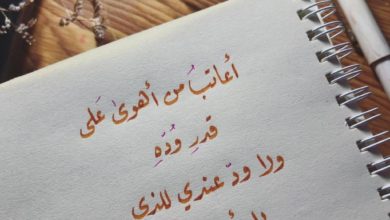 أعاتبُ من أهوىٰ عَلى
قدرِ وُدّهِ
ولا ودّ عندي للذي